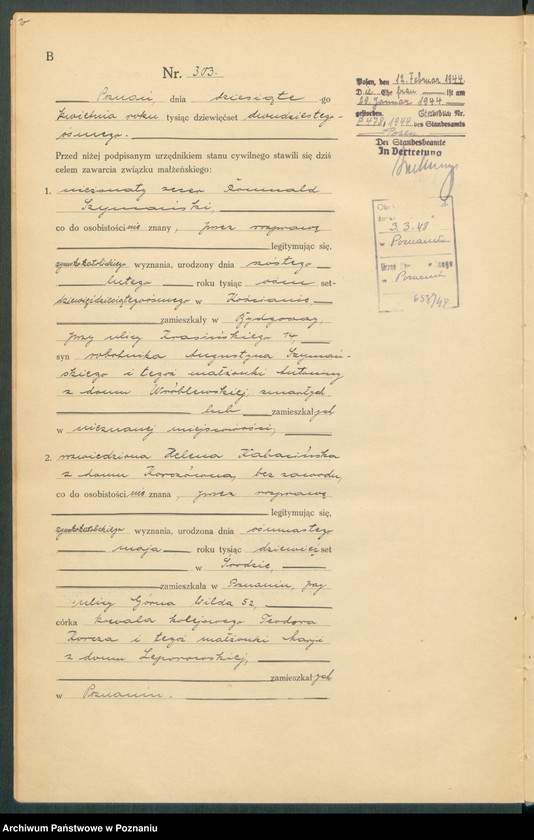 B
Nr. 303.
Poznań, dnia dziesiątego
kwietnia roku tysiąc dziewięćset dwudziestego
ósmego.
Przed niżej podpisanym urzędnikiem stanu cywilnego stawili się dziś
celem zawarcia związku małżeńskiego:
1. nieżonaty Romuald
Szymański,
co do osobistości nie znany, przez rozprawę
legitymując się,
rzymskokatolickiego wyznania, urodzony dnia szóstego
lutego roku tysiąc ośmset
dziewięćdziesiątegoósmego w Kościanie,
zamieszkały w Bydgoszczy,
przy ulicy Krasińskiego 14,
syn robotnika Augustyna Szymań-
skiego i tegoż małżonki Antoniny
z domu Wróblewskiej, zmarłych
lub zamieszkałych
w nieznanej miejscowości,
2. rozwiedziona Helena Kabacińska
z domu bez zawodu,
co do osobistości nie znana, przez rozprawę
legitymując się,
rzymskokatolickiego wyznania, urodzona dnia ośmnastego
maja roku tysiąc dziewięćset
w Środzie,
zamieszkała w Poznaniu, przy
ulicy Górna Wilda 52,
córka kowala kolejowego Teodora
i tegoż małżonki Marji
z domu
zamieszkałych
w Poznaniu.
Posen, den 12. Februar 1944
Die Ehefrau ist am
29. Januar 1944
gestorben. Sterbebuch Nr.
P 478/1944 des Standesamts
Posen
Der Standesbeamte
In Vertretung
3.3.48
w Poznaniu
w Poznaniu
658/48
Archiwum Państwowe w Poznaniu